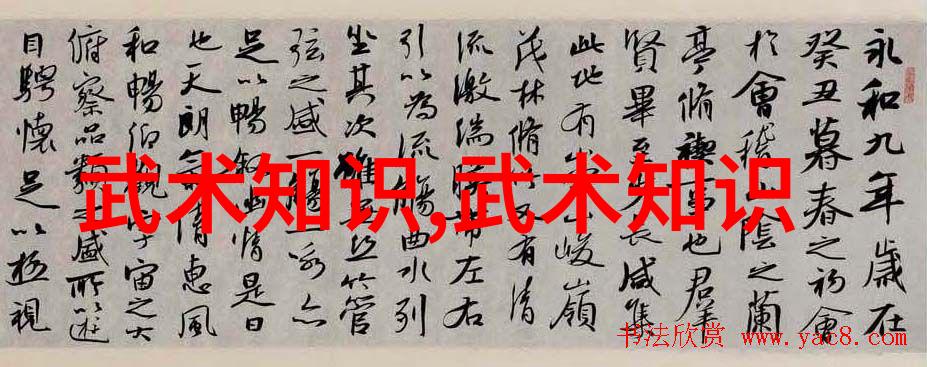 永和九年歲在
癸丑暮春之初會
於會稽山陰之蘭
亭脩禊事也羣
賢畢至少長咸集
此地有崇山峻嶺
茂林脩竹又有清
流激湍暎帶左右
引以為流觴曲水列
坐其次雖無絲竹管
弦之盛一觴一詠亦
足以暢敘幽情是日
也天朗氣清惠風
和暢仰觀宇宙之大
俯察品類之盛所以遊
目騁懷足以極視
武术知识,武术知识
书法欣赏 www.yac8.com